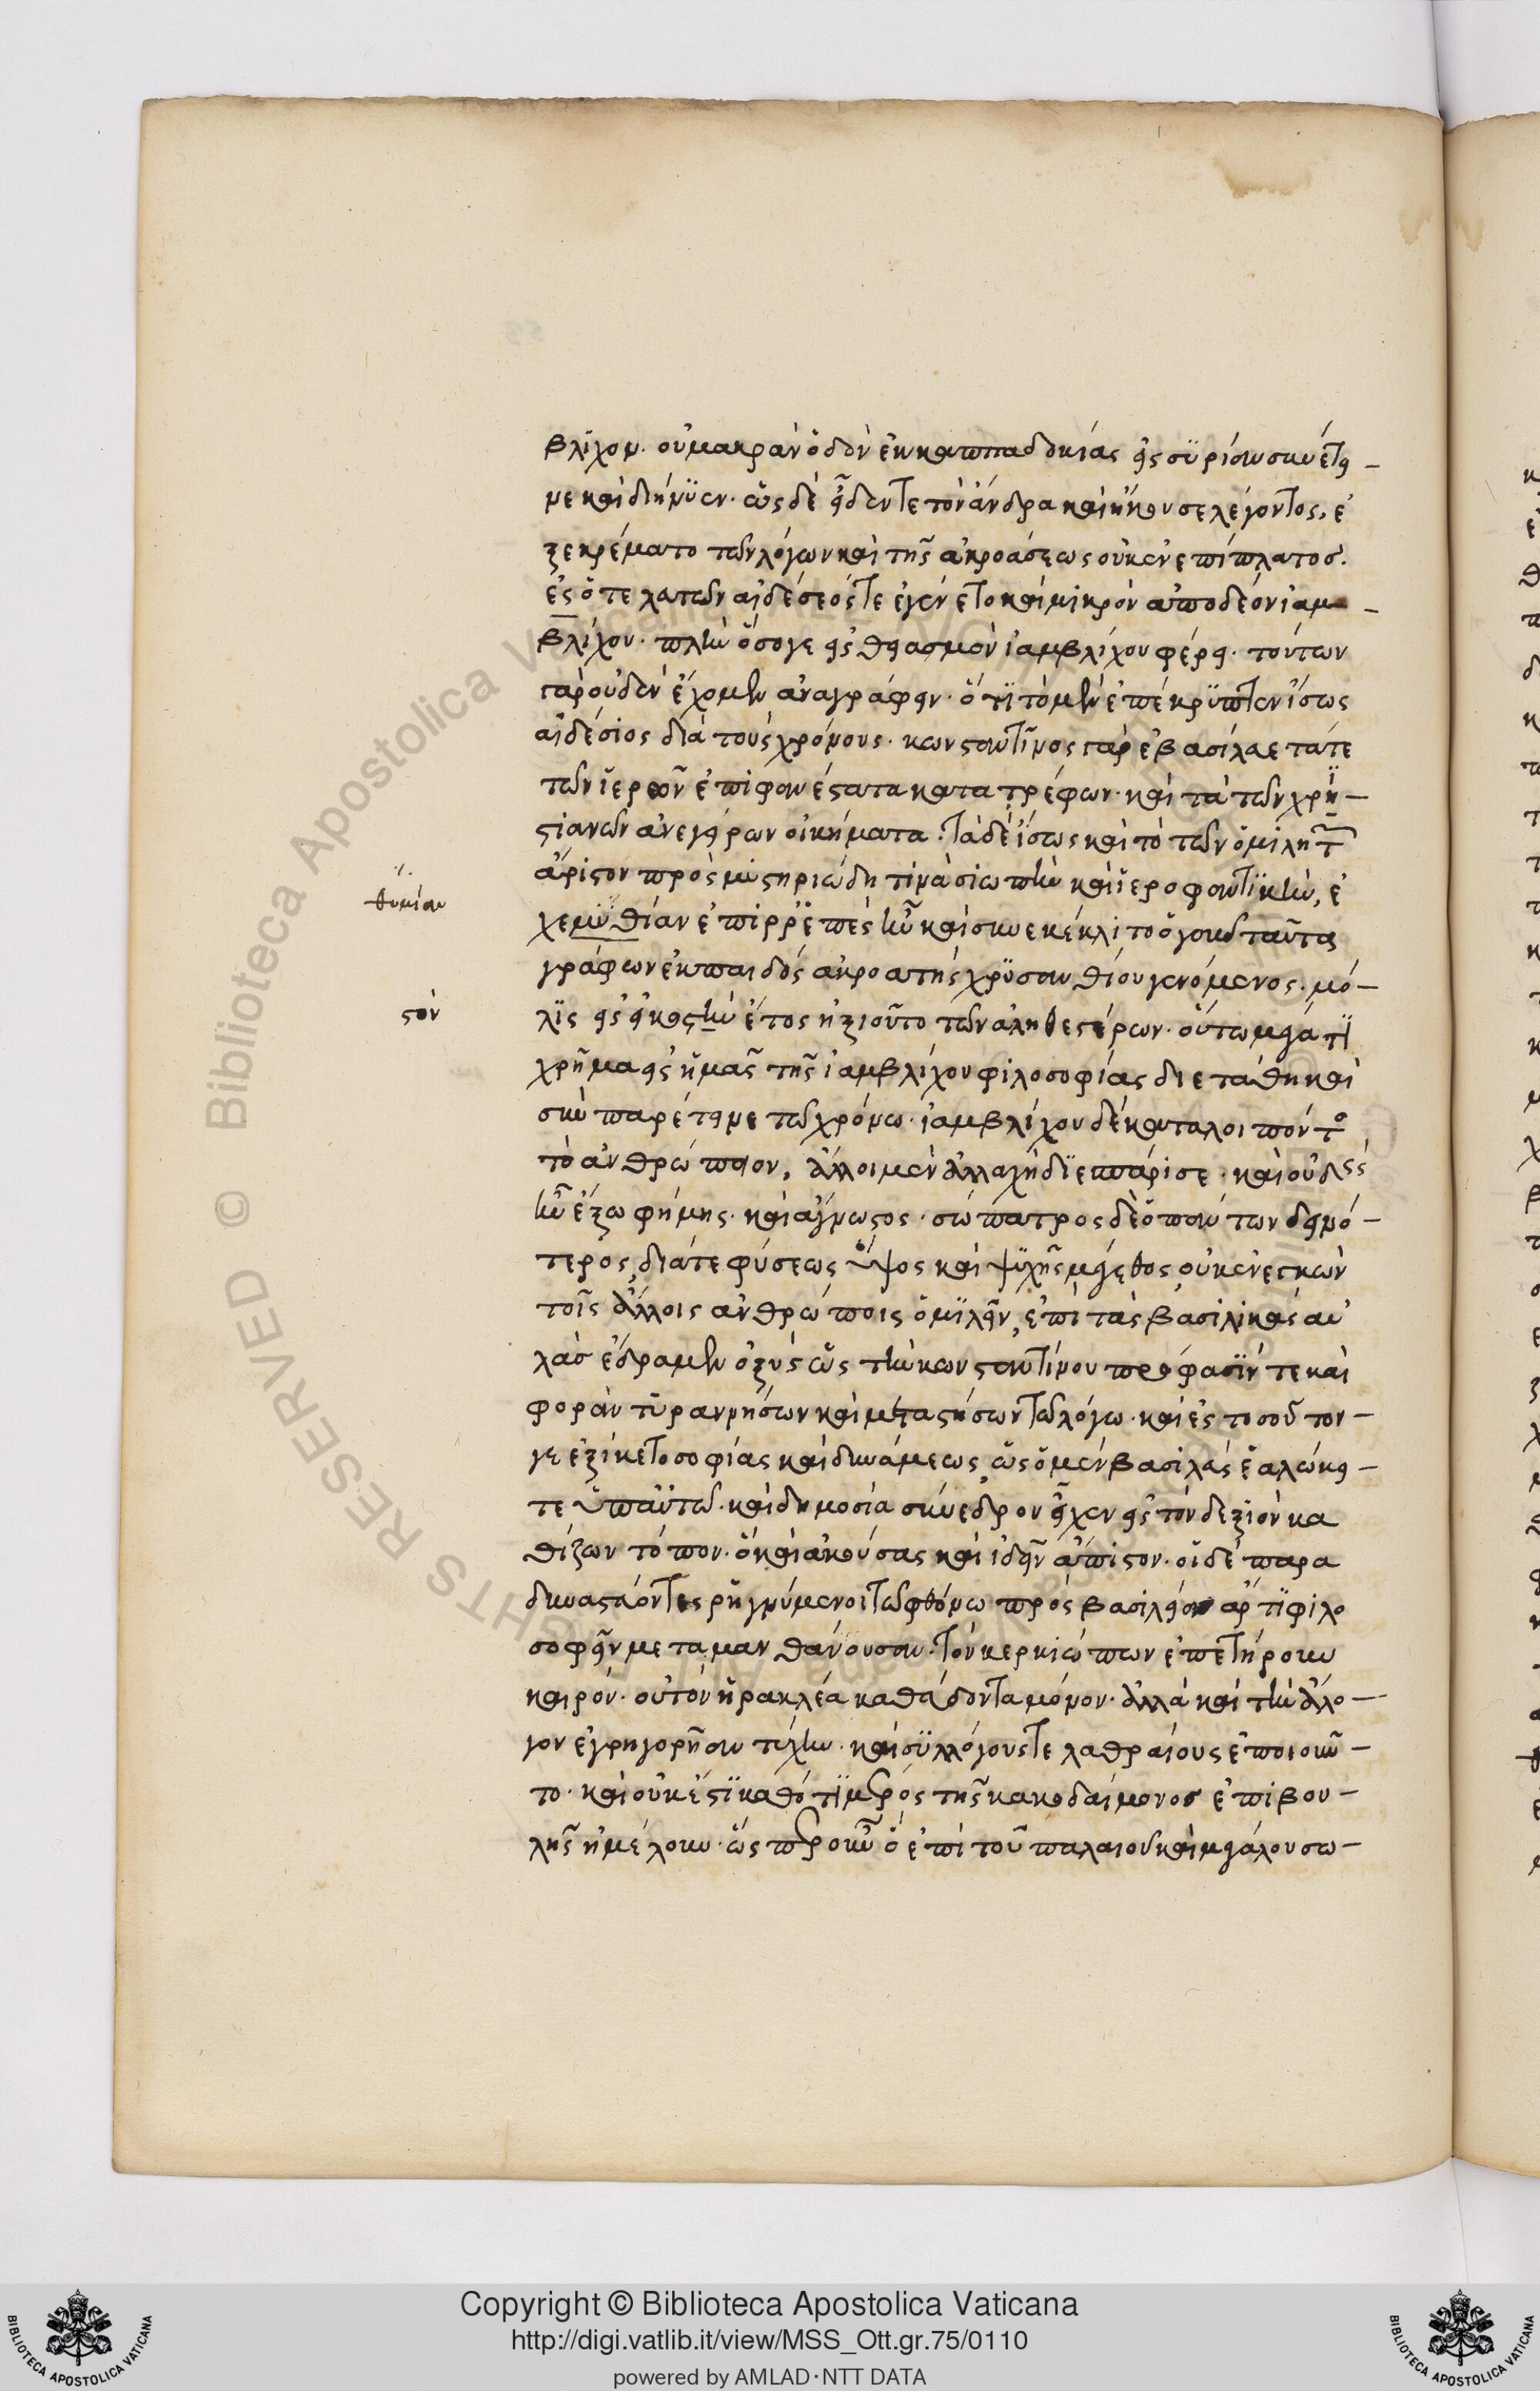 βλίχον. οὐ μακρὰν ὁδὸν ἐκ καππαδοκίας εἰς συρίαν συνέτει-
νε καὶ διήνυεν. ὡς δὲ εἶδέν τε τὸν ἄνδρα καὶ ἤκουσε λέγοντος, ἐ
ξεκρέματο τῶν λόγων καὶ τῆς ἀκροάσεως οὐκ ἐνεπίπλατο.
ἐς ὅ τελευτῶν αἰδέσιός τε ἐγένετο καὶ μικρὸν ἀποδέον ἰαμ-
βλίχου. πλὴν ὅσα γε εἰς θειασμὸν ἰαμβλίχου φέρει. τούτων
γὰρ οὐδὲν ἔχομεν ἀναγράφειν. ὅτι τὸ μὲν ἐπέκρυπτεν ἴσως
αἰδέσιος διὰ τοὺς χρόνους. κωνσταντῖνος γὰρ ἐβασίλευε τά τε
τῶν ἱερῶν ἐπιφανέστατα καταστρέφων. καὶ τὰ τῶν χρη-
στιανῶν ἀνεγείρων οἰκήματα. τὰ δὲ ἴσως καὶ τὸ τῶν ὁμιλητ
ἄριστον πρὸς μυστηριώδη τινὰ σιωπὴν καὶ ἱεροφαντικὴν, ἐ
χεμυθίαν ἐπιρρεπὲς ἦν καὶ συνεκέκλιτο ὁ γοῦν ταῦτα
γράφων ἐκ παιδὸς ἀκροατὴς χρυσανθίου γενόμενος. μό-
λις εἰς εἰκοστὴν ἔτος ἠξιοῦτο τῶν ἀληθεστέρων. οὕτω μέγα τι
χρῆμα εἰς ἡμᾶς τῆς ἰαμβλίχου φιλοσοφίας διετάθη καὶ
συμπαρέτεινε τῷ χρόνῳ. ἰαμβλίχου δὲ καταλοιπόντο
τὸ ἀνθρώπειον, ἄλλοι μὲν ἀλλαχῆ διεσπάρησε. καὶ οὐδεὶς
ἦν ἔξω φήμης. καὶ ἄγνωστος. σώπατρος δὲ ὁ πάντων δεινό-
τερος, διά τε φύσεως ὕψος καὶ ψυχῆς μέγεθος, οὐκ ἐνεγκὼν
τοῖς ἄλλοις ἀνθρώποις ὁμιλεῖν, ἐπὶ τὰς βασιλικὰς αὐ
λὰς ἔδραμεν ὀξὺς ὡς τὴν κωνσταντίνου πρόφασίν τε καὶ
φορὰν τυραννήσων καὶ μεταστήσων τῷ λόγῳ. καὶ ἐς τοσοῦτον-
γε ἐξίκετο σοφίας καὶ δυνάμεως, ὡς ὁ μὲν βασιλεὺς ἑαλώκει-
τε ὑπ' αὐτῷ. καὶ δημοσίᾳ σύνεδρον εἶχεν εἰς τὸν δεξιὸν κα
θίζων τόπον. ὃ καὶ ἀκούσας καὶ ἰδεῖν ἄπιστον. οἱ δὲ παρα
δυναστεύοντες ῥηγνύμενοι τῷ φθόνῳ πρὸς βασιλείαν ἄρτι φιλο
σοφεῖν μεταμανθάνουσαν. τὸν κερκώπων ἐπετήρουν
καιρόν. οὐ τὸν ἡρακλέα καθεύδοντα μόνον. ἀλλὰ καὶ τὴν ἄλο-
γον ἐγρηγορῆσαν τύχην. καὶ συλλόγους τε λαθραίους ἐποιοῦν-
το. καὶ οὐκ ἔστι καθό τι μέρος τῆς κακοδαίμονος ἐπιβου-
λῆς ἠμέλουν. ὥσπερ οὖν ὁ ἐπὶ τοῦ παλαιοῦ καὶ μεγάλου σω-
θυμίαν
στὸν
Copyright © Biblioteca Apostolica Vaticana
http://digi.vatlib.it/view/MSS_Ott.gr.75/0110
powered by AMLAD·NTT DATA
BIBLIOTECA APOSTOLICA VATICANA
BIBLIOTECA APOSTOLICA VATICANA